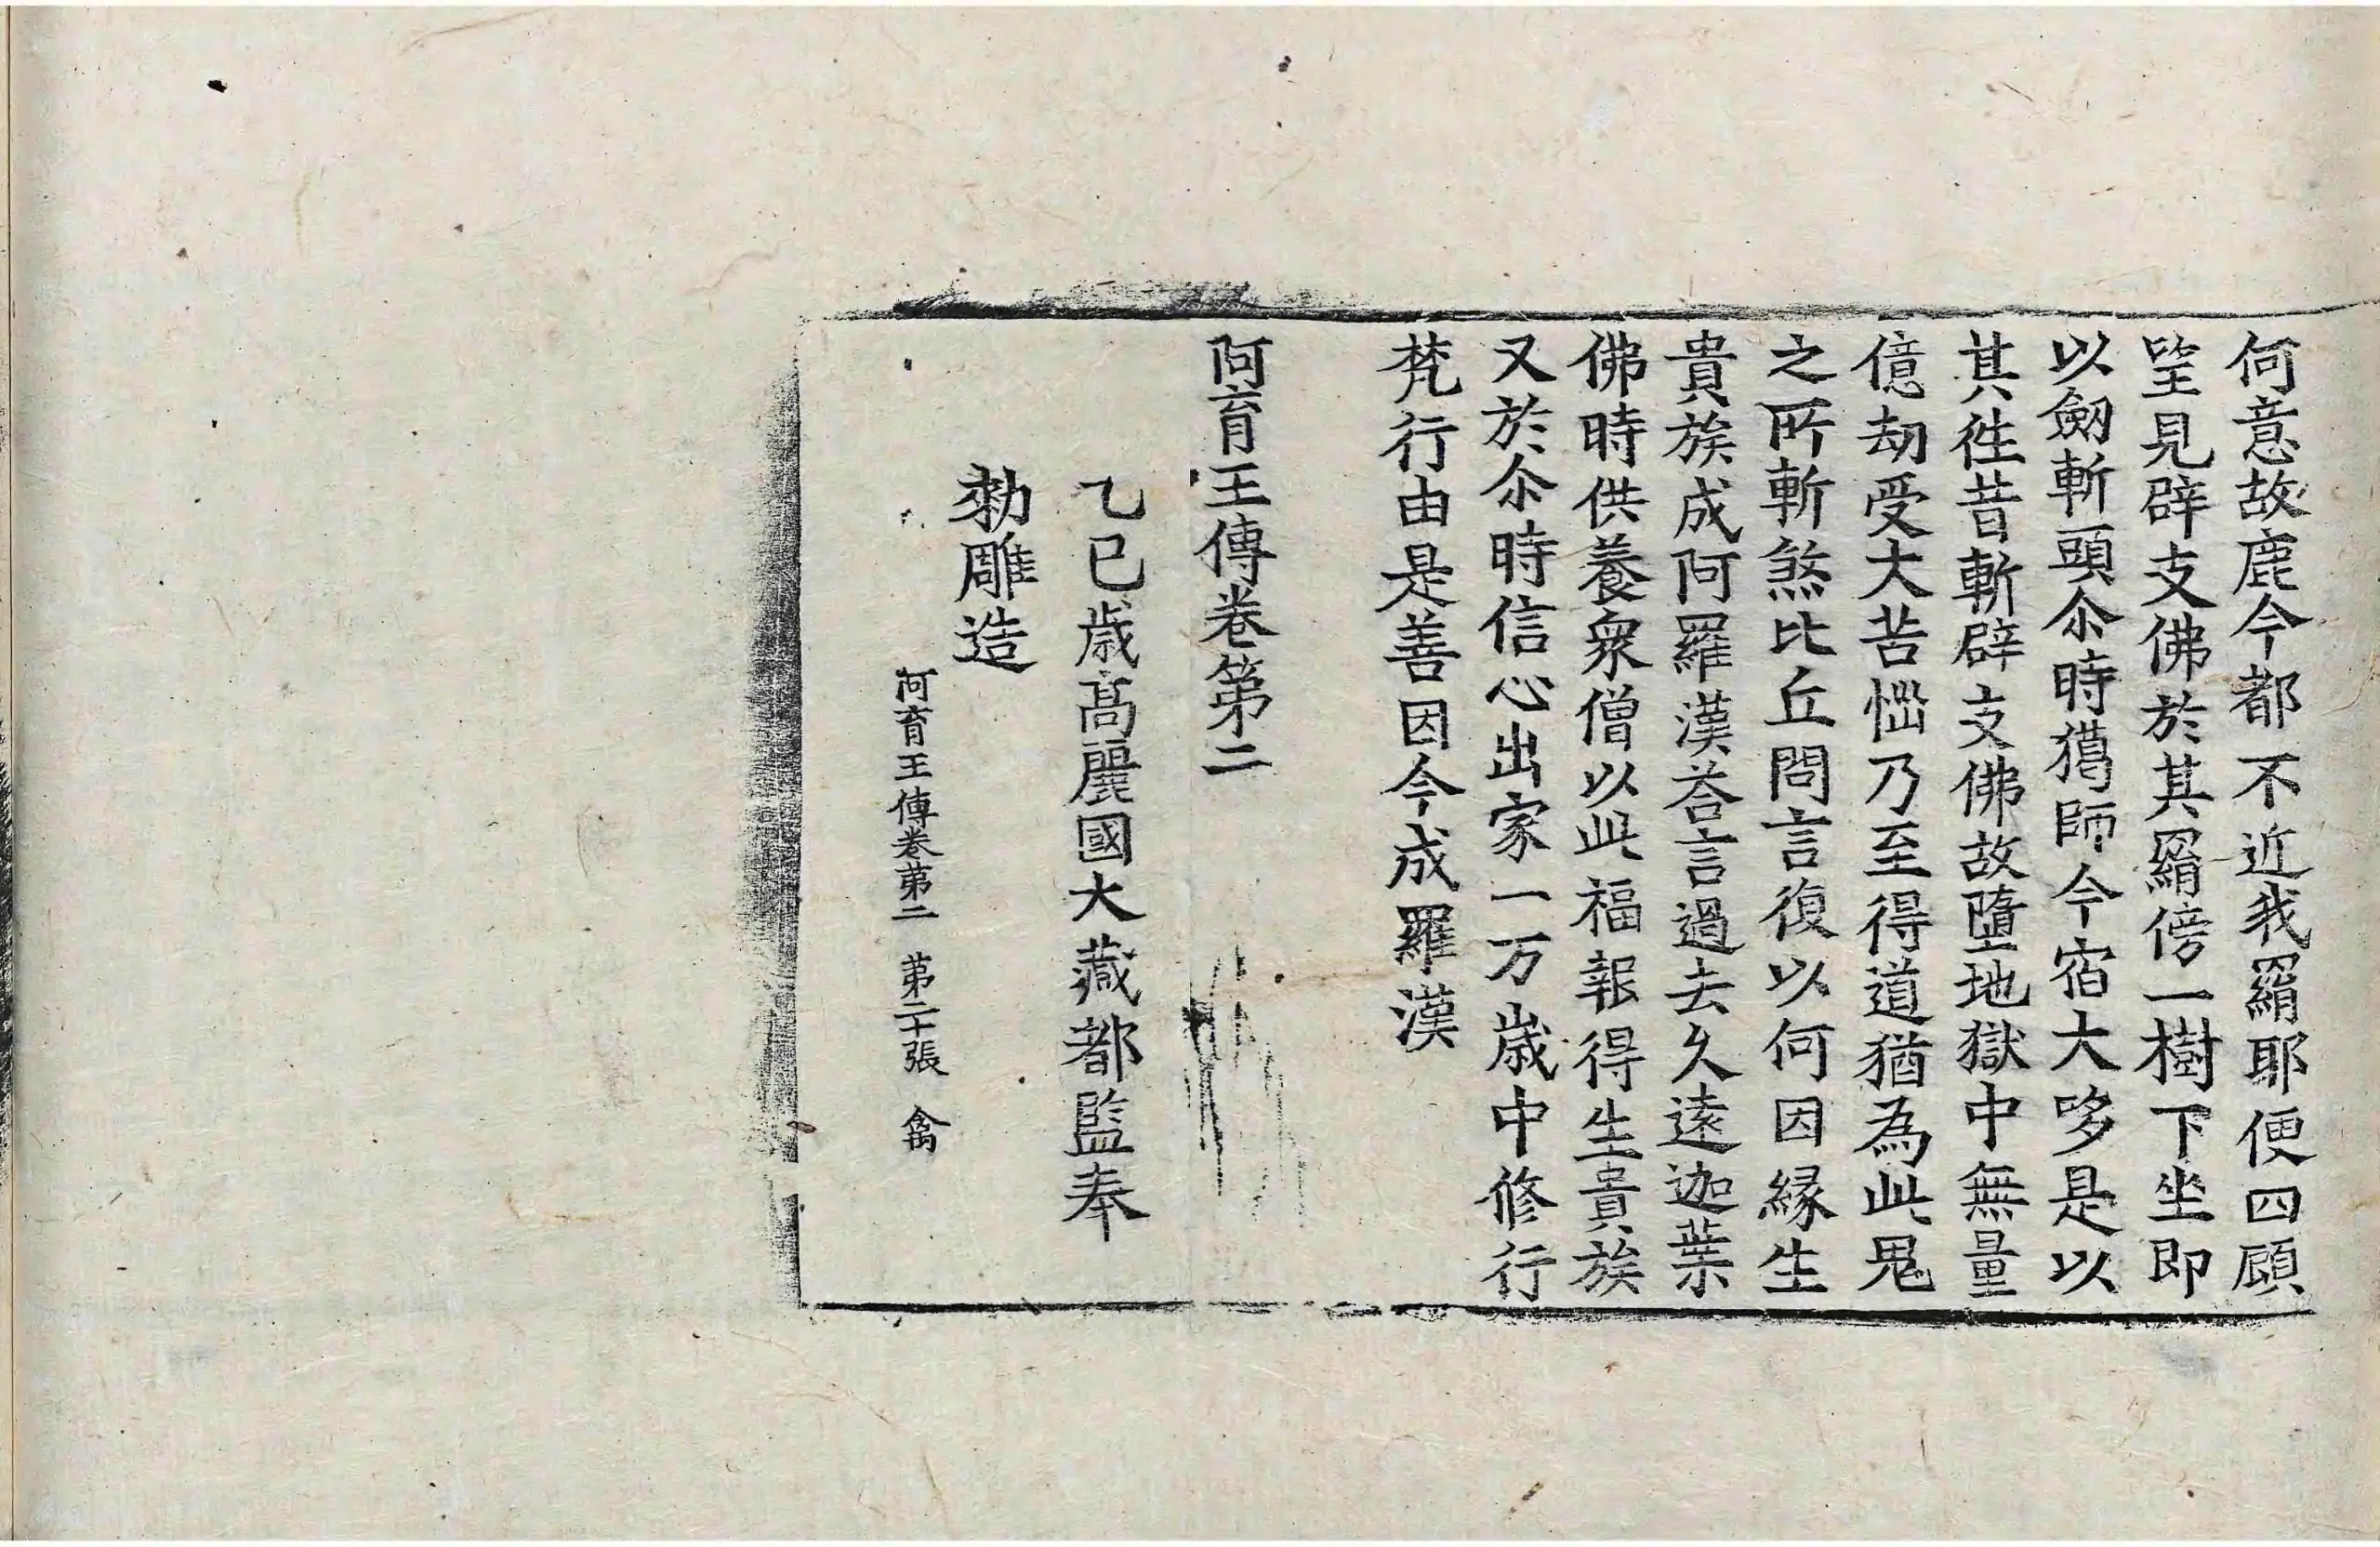 何意故鹿今都不近我羂耶便四顧
望見辟支佛於其羂傍一樹下坐即
以劒斬頭尒時獦師今宿大哆是以
其徃昔斬辟支佛故墮地獄中無量
億劫受大苦惱乃至得道猶為此鬼
之所斬煞比丘問言復以何因緣生
貴族成阿羅漢荅言過去久遠迦葉
佛時供養衆僧以此福報得生貴族
又於尒時信心出家一万歲中修行
梵行由是善因今成羅漢
阿育王傳卷第二
乙巳歲高麗國大藏都監奉
勑雕造
阿育王傳卷第二 第二十張 禽